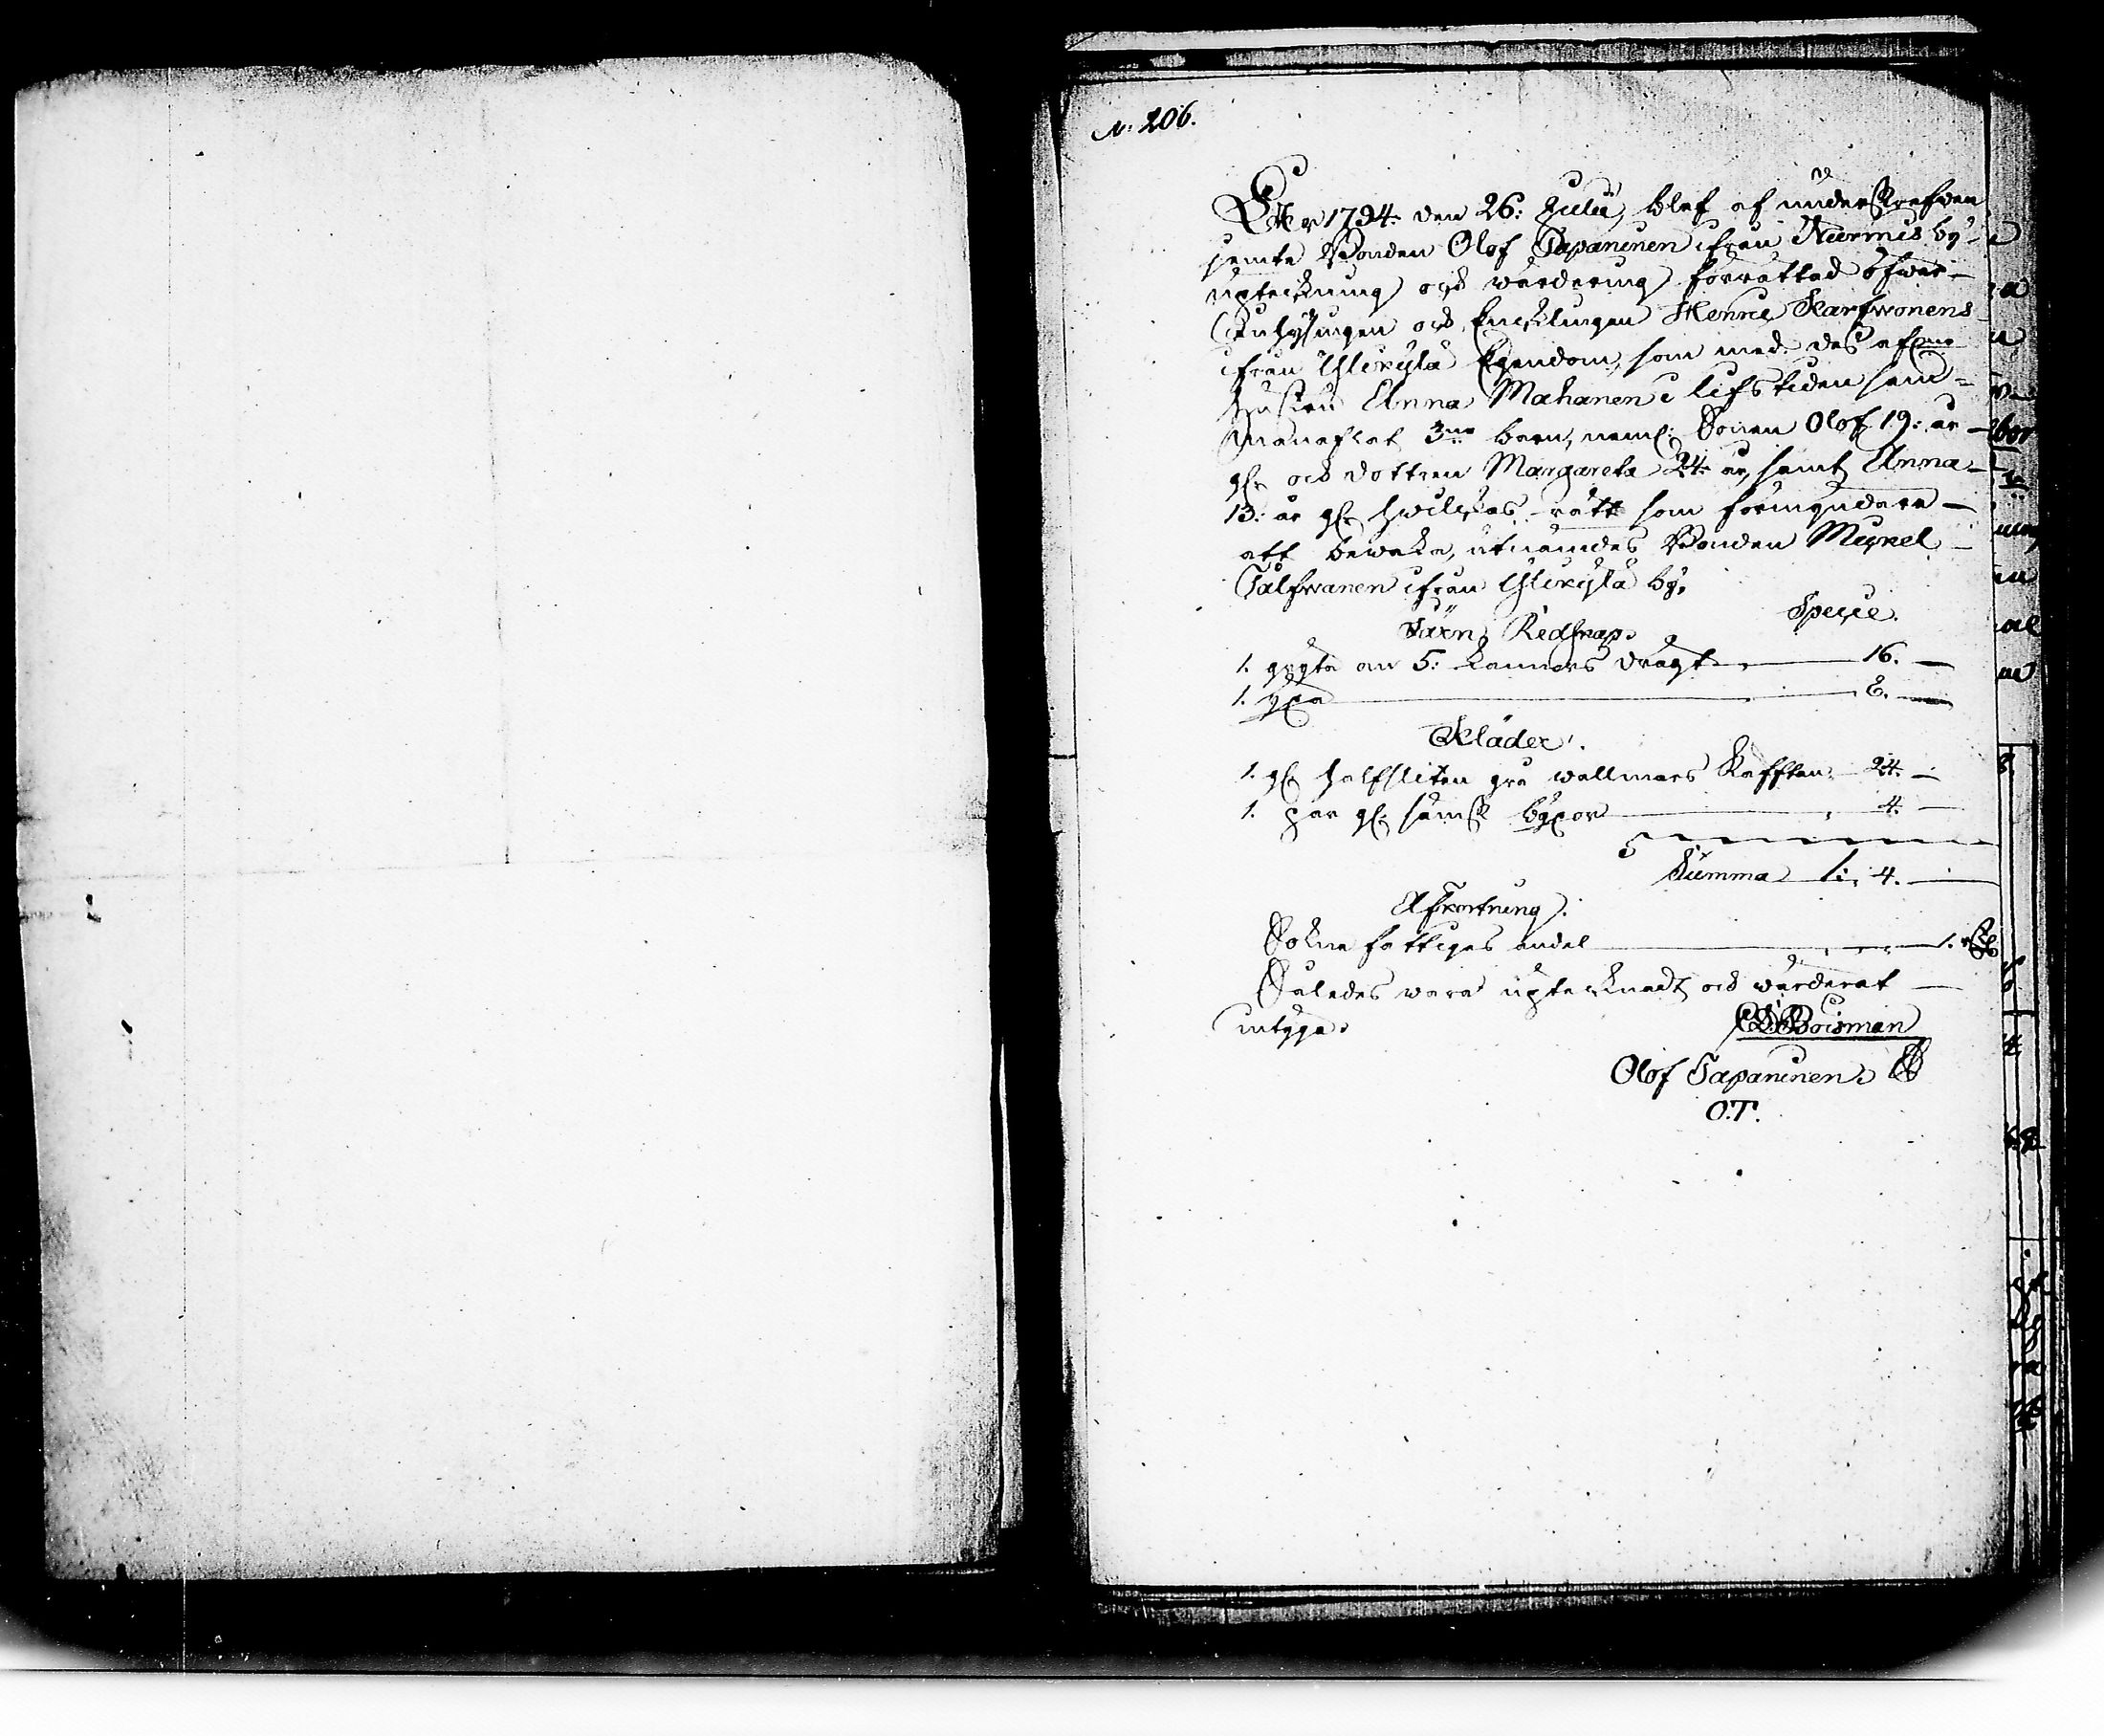 N: 206.
År 1794 den 26: Julii, blef af underskrefven
jemte Bonden Olof Tapaninen ifrån Nurmis by
upteckning och wärdering förrättad öfwer
Inhysingen och Encklingen Henric Karfwonens
ifrån Ylikylä Egendom, som med des afl:ne
hustru Anna Mahanen i lifstiden sam=
manaflat 3ne barn, neml: Sonen Olof 19: år
gl. och dottren Margareta 24 år, samt Anna
13: år gl. hwilkas rätt som förmyndare
att bewaka, utnämdes Bonden Mickel
Tålfwanen ifrån Ylikylä by,
Specie.
Järn Redskap.
1. gryta om 5: kannors drägt 16.
1. yxa 8.
Kläder.
1. gl halfsliten grå wallmars Kafftan 24.
1. par gl: sämsk byxor 4.
Summa 1: 4.
Afkortning.
Sokne fattigas andel 1.
Således wara uptecknadt och wärderat
intyga.
Boisman
Olof Tapaninen
O.T.